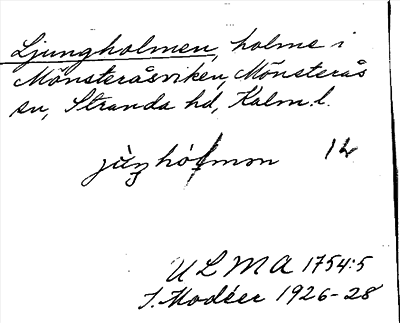 Ljungholmen, holme i
Mönsteråsviken, Mönsterås
sn, Stranda hd, Kalm. l.
ULMA 1754:5
I. Modéer 1926-28